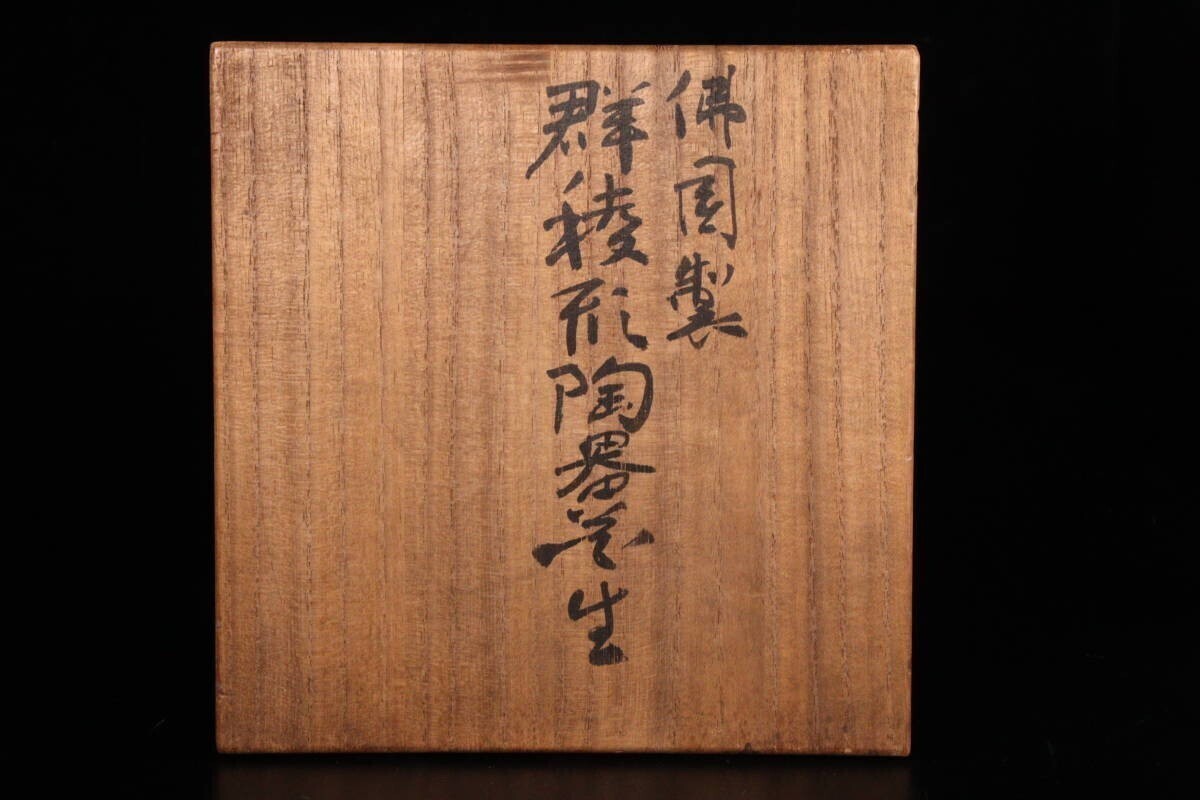 佛國製
群稜形陶器花生